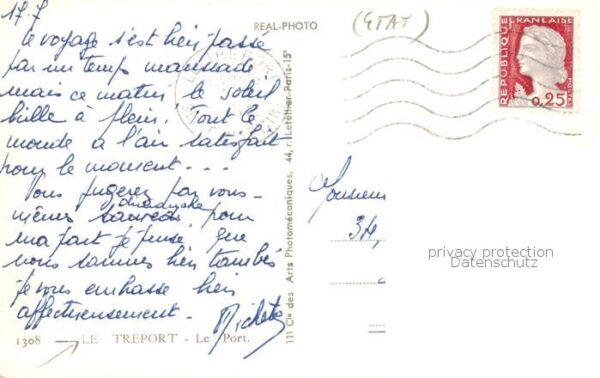 17.7
Le voyage s'est bien passé
par un temps maussade
mais ce matin le soleil
brille à plein ! Tout le
monde à l'air satisfait
pour le moment . . .
Vous jugerez par vous-
mêmes samedi pour
ma part je pense que
nous sommes bien tombés
je vous embrasse bien
affectueusement.
1308 LE TREPORT - Le Port.
REAL-PHOTO
111 Cie des Arts Photomécaniques, 44, r. Letellier Paris-15e
(ETAT)
REPUBLIQUE FRANCAISE
0,25
Monsieur
privacy protection
Datenschutz